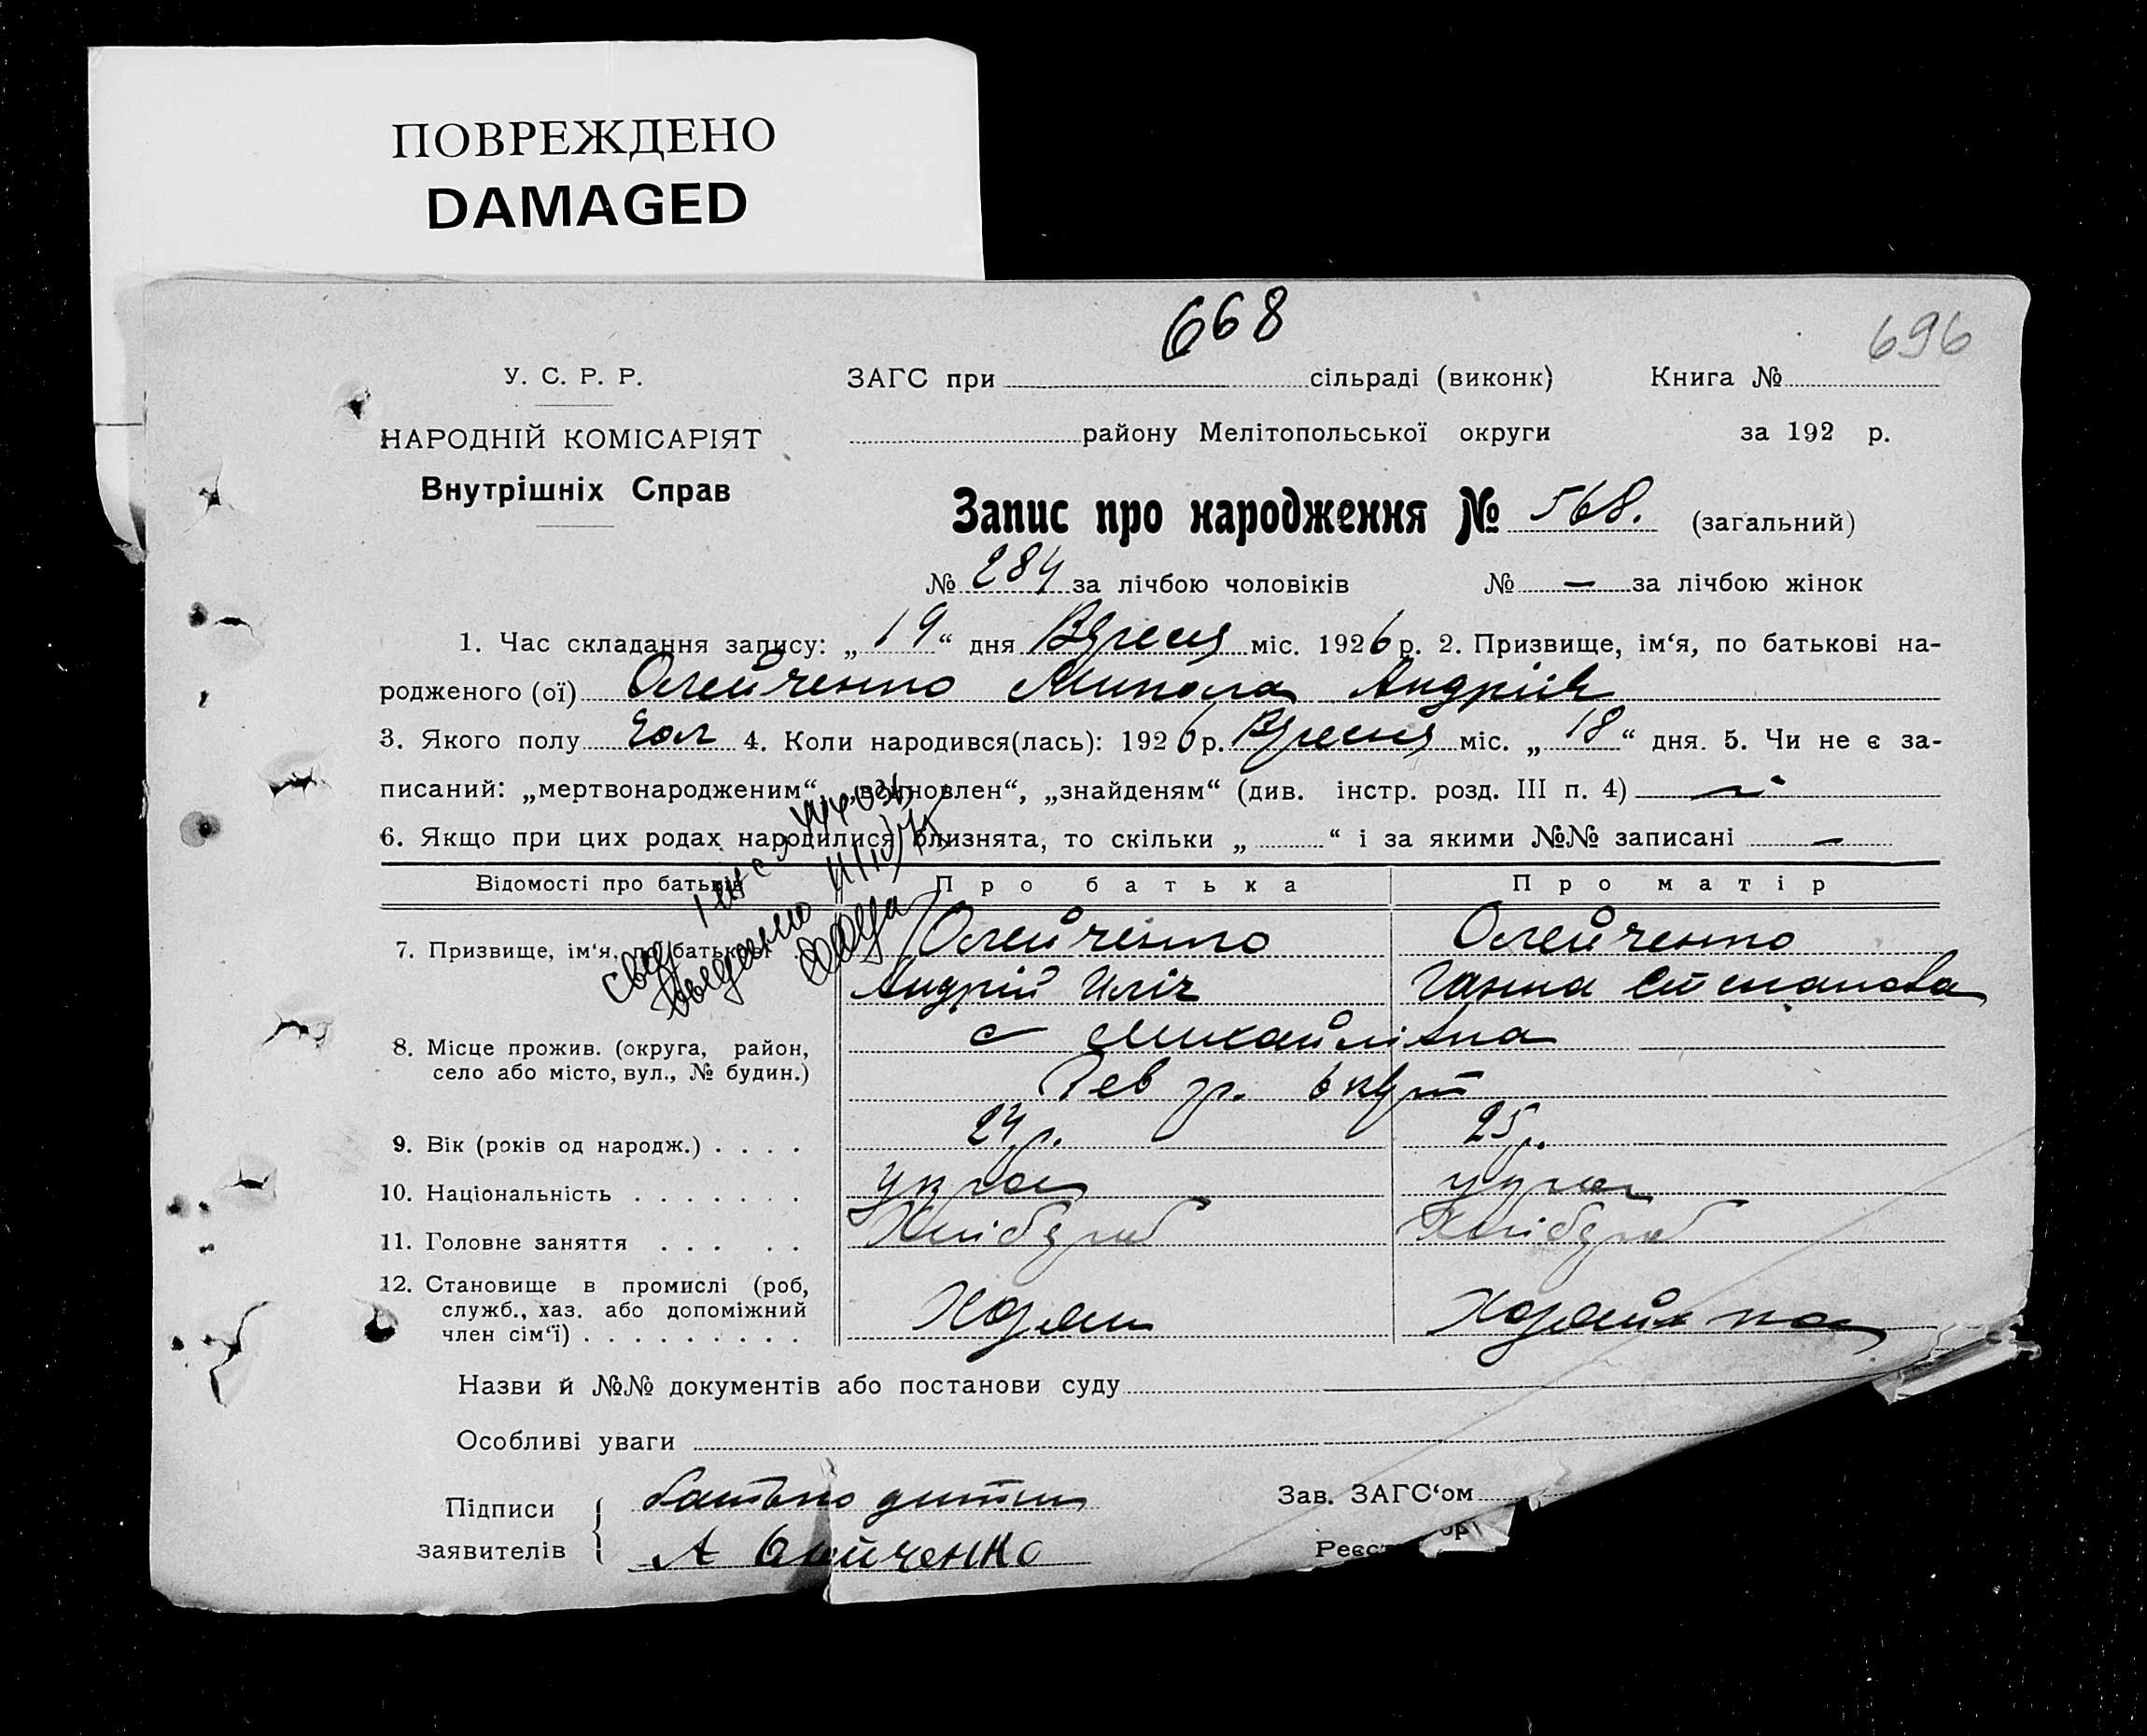 ПОВРЕЖДЕНО
DAMAGED
668
696
У. С. Р. Р.
ЗАГС при сільраді (виконк) Книга №
НАРОДНІЙ КОМІСАРІЯТ
району Мелітопольської округи за 192 р.
Внутрішніх Справ
Запис про народження № 568. (загальний)
№ 284 за лічбою чоловіків № — за лічбою жінок
1. Час складання запису: „ 19 “ дня Вересня міс. 1926 р. 2. Призвище, ім‘я, по батькові на-
родженого (ої) Олейченко Микола Андріїв
3. Якого полу Чол 4. Коли народився(лась): 1926 р. Вересня міс. „ 18 “ дня. 5. Чи не є за-
писаний: „мертвонародженим“, „вдиновлен“, „знайденям“ (див. інстр. розд. III п. 4)
6. Якщо при цих родах народилися близнята, то скільки „ “ і за якими №№ записані —
Відомості про батьків Про батька Про матір
выдано
7. Призвище, ім‘я, по батькові Олейченко Олейченко
Андрій Иліч Ганна Степанова
8. Місце прожив. (округа, район, с Михайлівка
село або місто, вул., № будин.) Рев гр. 6 кут
9. Вік (років од народж.) . . . . 24 р. 25 р.
10. Національність . . . . . . . укра укра
11. Головне заняття . . . . . Хлібороб Хлібороб
12. Становище в промислі (роб,
служб., хаз. або допоміжний Хозяин Хозяйка
член сім‘ї) . . . . . . . . .
Назви й №№ документів або постанови суду
Особливі уваги
Підписи батько дитини Зав. ЗАГС‘ом
заявителів А Олейченко Реєст ор